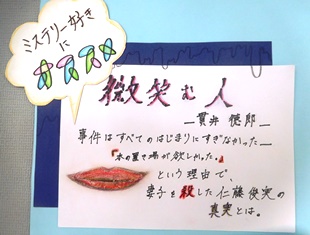 ミステリー好き
に
オススメ
微笑む人
―貫井 徳郎―
事件はすべてのはじまりにすぎなかった―
「本の置き場が欲しかった。」
という理由で、
妻子を殺した仁藤俊実の
真実とは。